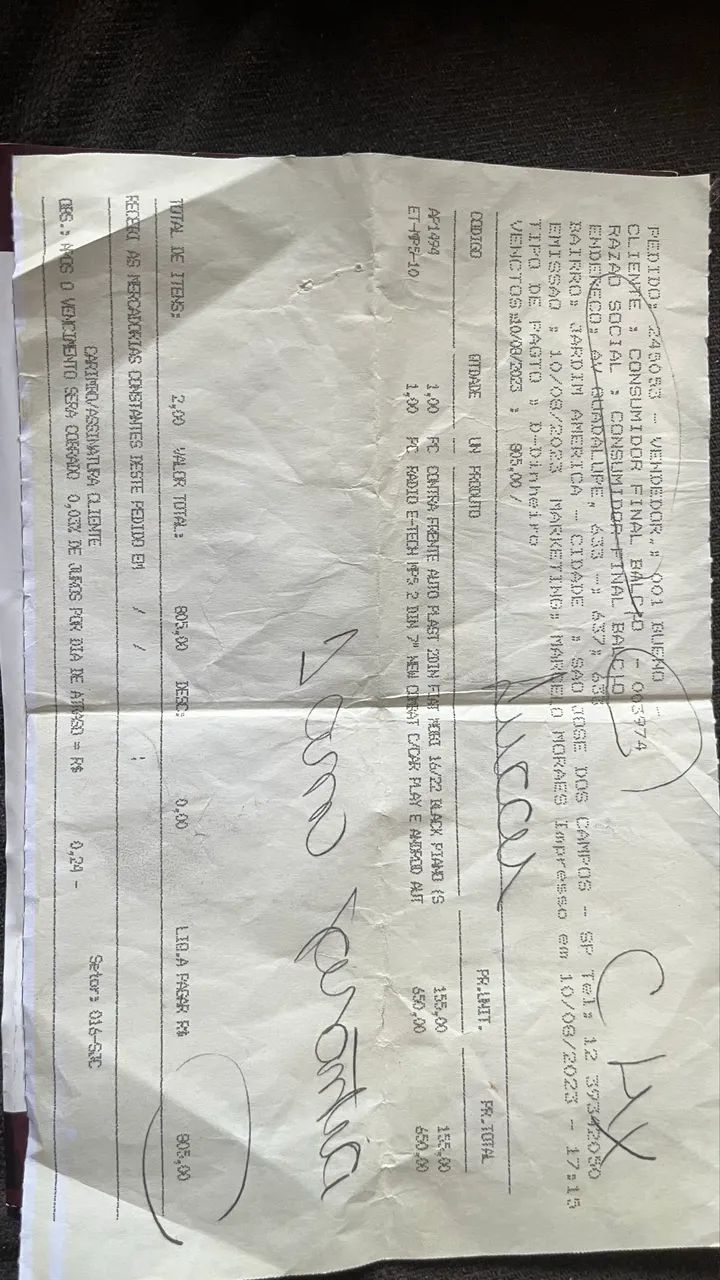 PEDIDO: 245053 - VENDEDOR.: 001 BUENO -
CLIENTE : CONSUMIDOR FINAL BALCÃO - 003974
RAZAO SOCIAL : CONSUMIDOR FINAL BALCÃO
ENDERECO: AV GUADALUPE, 633 -: 637: 633
BAIRRO: JARDIM AMERICA - CIDADE : SAO JOSE DOS CAMPOS - SP Tel: 12 39342050
EMISSAO : 10/08/2023 MARKETING: MARCELO MORAES Impresso em 10/08/2023 - 17:15
TIPO DE PAGTO : D-Dinheiro
VENCTOS:10/08/2023 : 805,00 /
Lucas
CODIGO QTDADE UN PRODUTO PR.UNIT. PR.TOTAL
AP1494 1,00 PC CONTRA FRENTE AUTO PLAST 2DIN FIAT MOBI 16/22 BLACK PIANO (S 155,00 155,00
ET-MP5-10 1,00 PC RADIO E-TECH MP5 2 DIN 7" NEW COBRAT C/CAR PLAY E ANDROID AUT 650,00 650,00
1 ano garantia
TOTAL DE ITENS: 2,00 VALOR TOTAL: 805,00 DESC: 0,00 LIQ.A PAGAR R$ 805,00
RECEBI AS MERCADORIAS CONSTANTES DESTE PEDIDO EM / / :
CARIMBO/ASSINATURA CLIENTE Setor: 016-SJC
OBS.: APOS O VENCIMENTO SERA COBRADO 0,03% DE JUROS POR DIA DE ATRASO = R$ 0,24 -